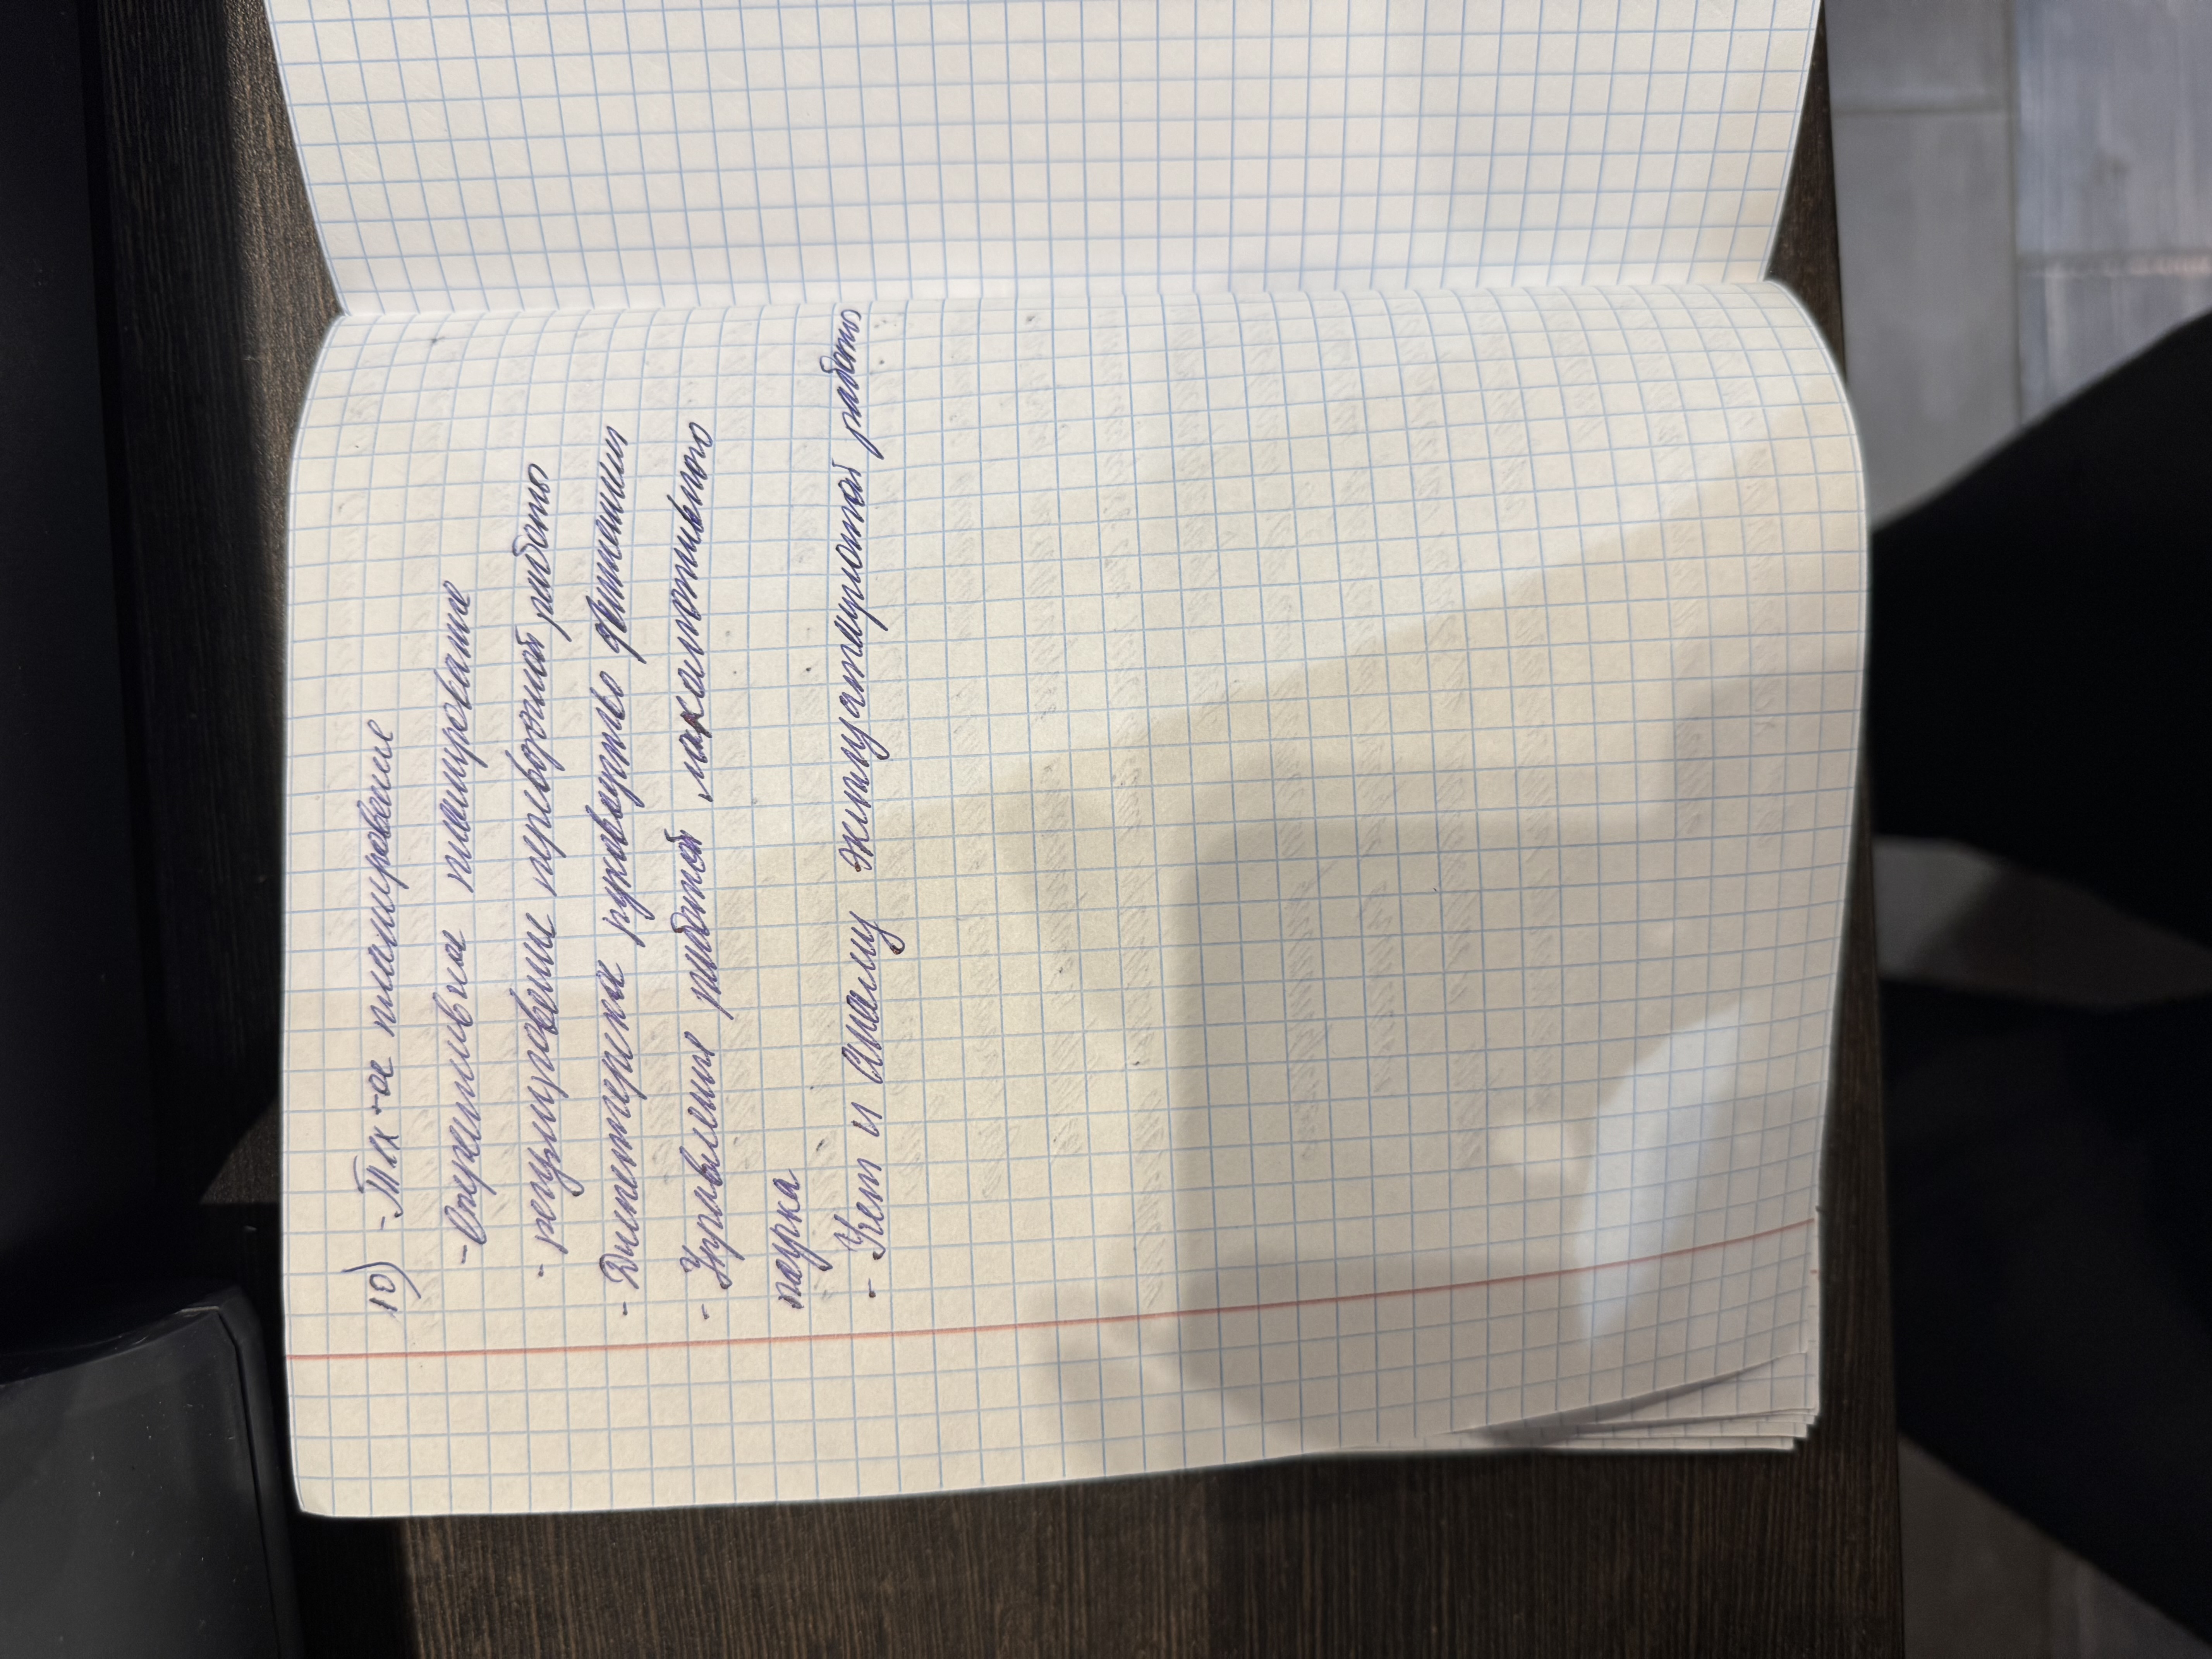 10) - Тех-ое планирование
- Оперативное планирование
- регулирование перевозочной работы
- Диспетчерское руководство движением
- Управление работой локомотивного
парка
- Учет и анализ эксплуатационной работы